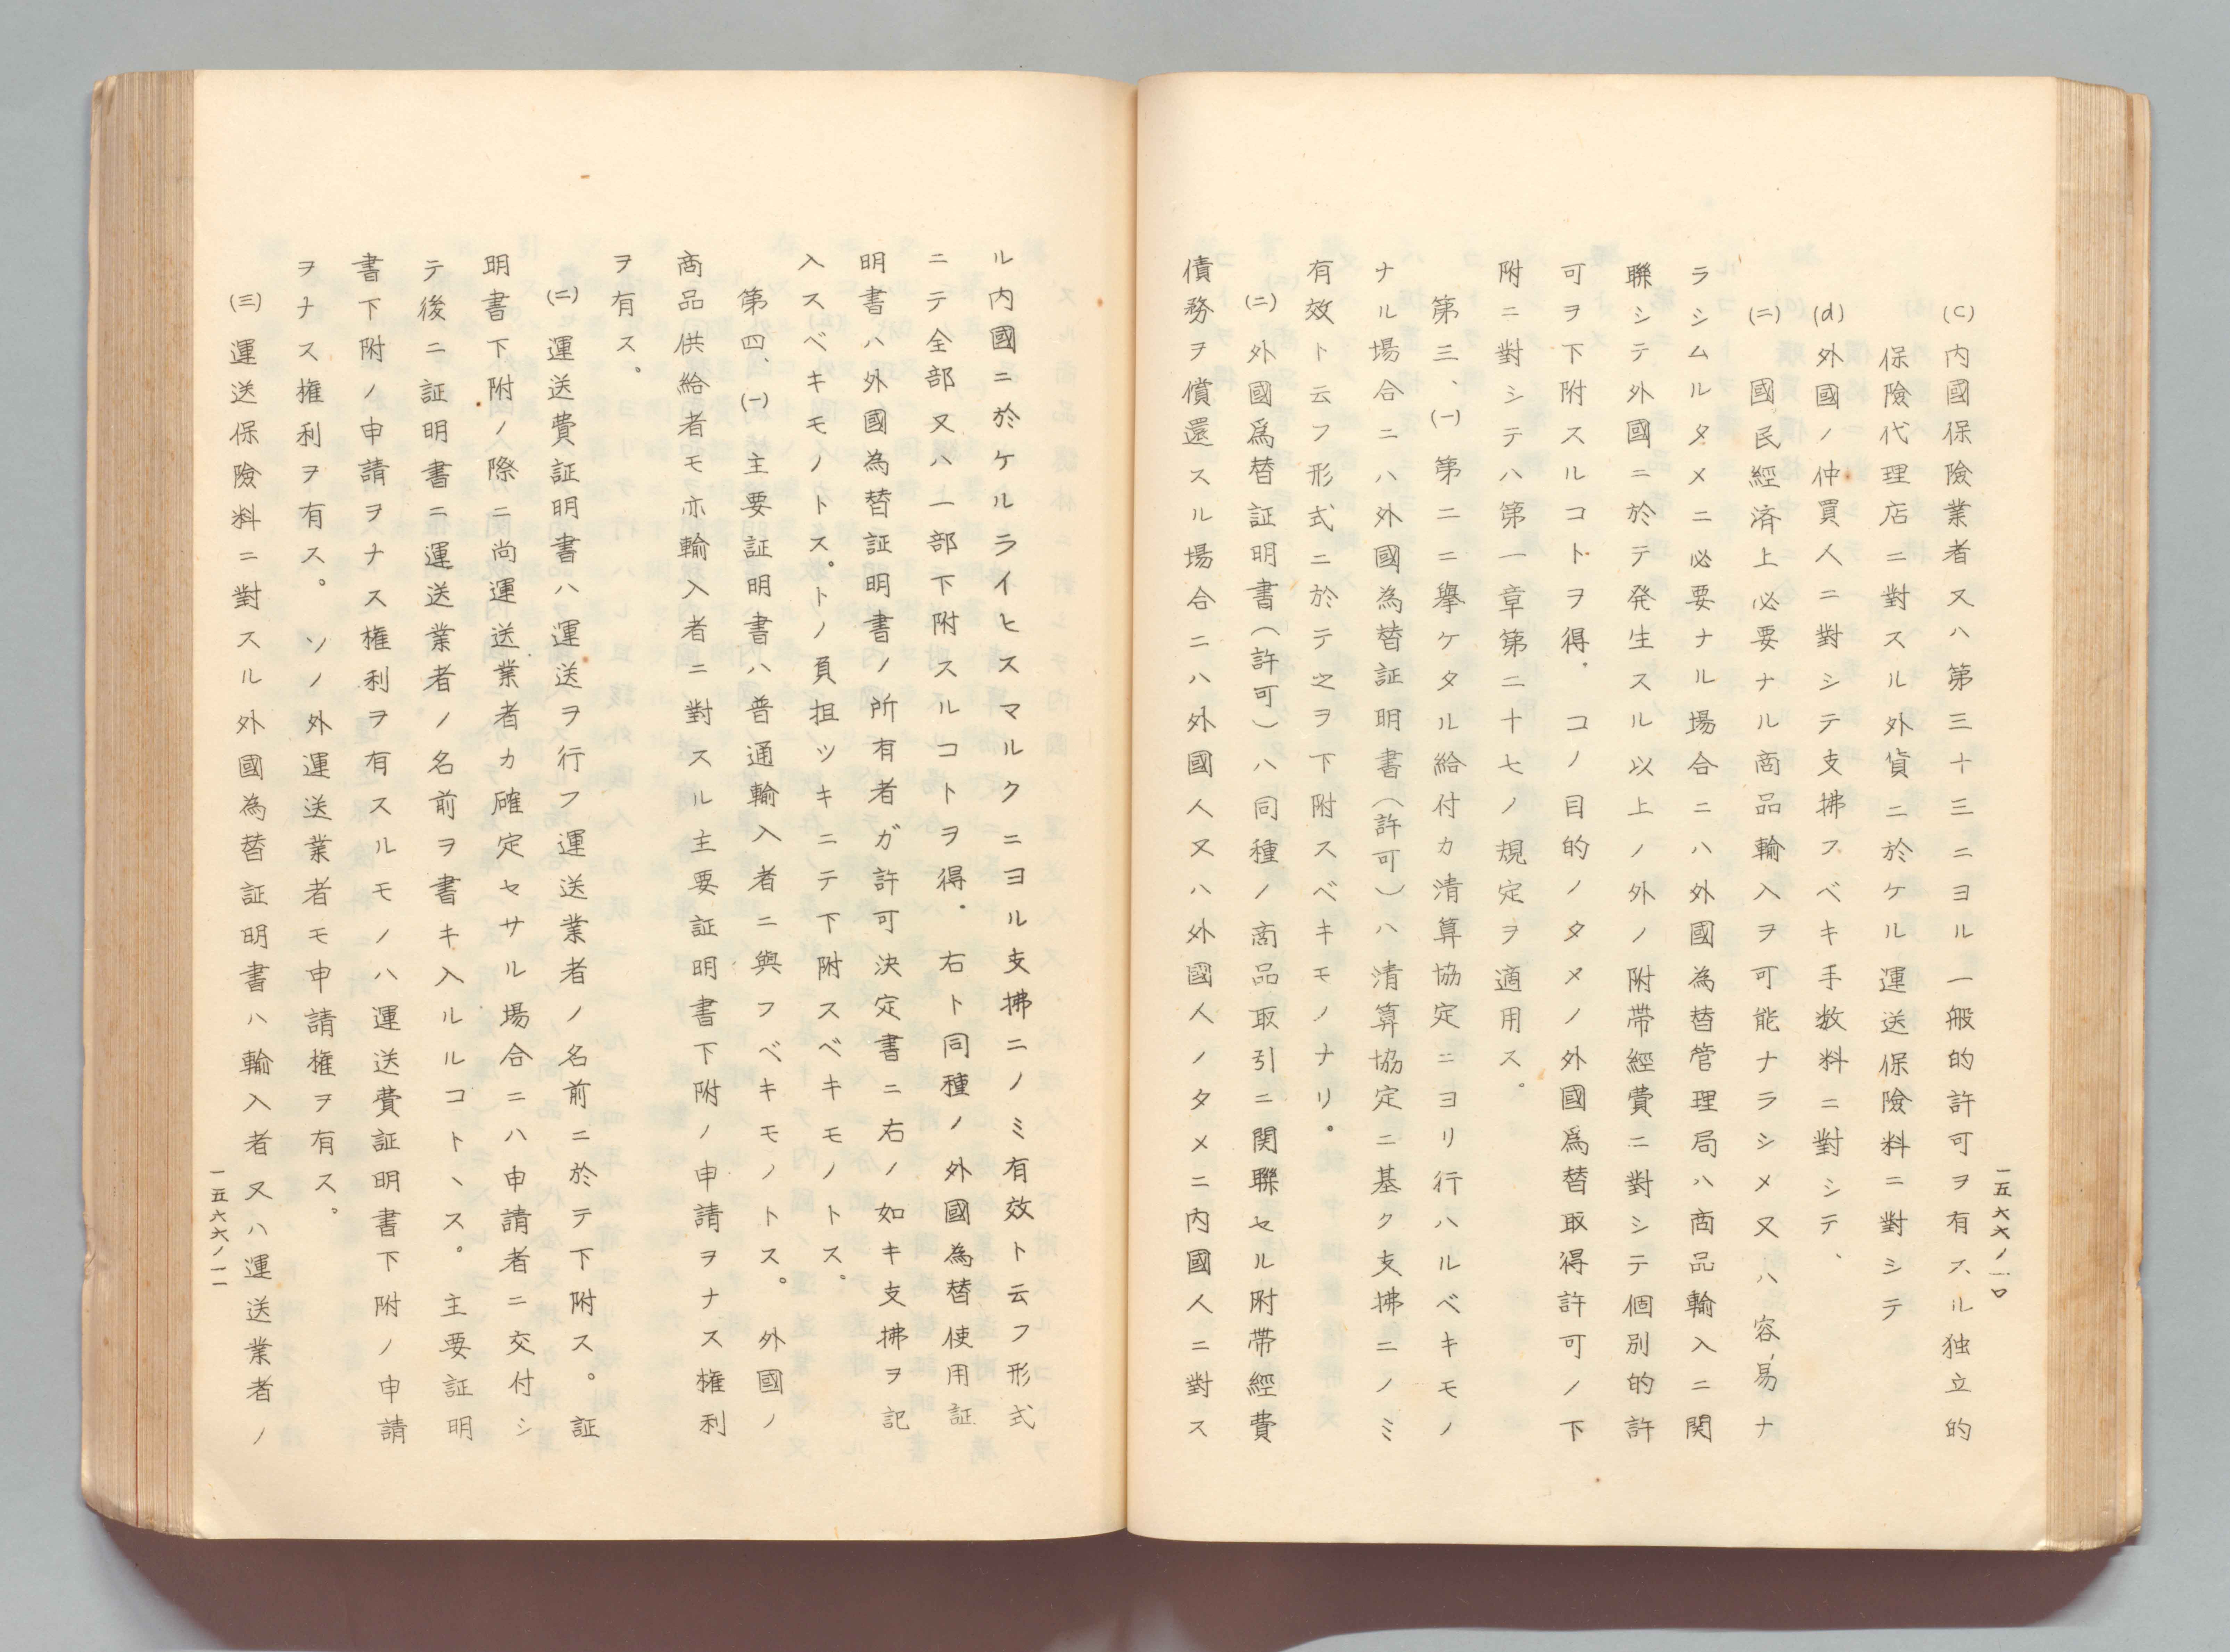 (C)内國保險業者又ハ第三十三ニヨル一般的許可ヲ有スル独立的
保險代理店ニ對スル外貨ニ於ケル運送保險料ニ對シテ
(d)外國ノ仲買人ニ對シテ支拂フベキ手数料ニ對シテ、
(二)國民經済上必要ナル商品輸入ヲ可能ナラシメ又ハ容易ナ
ラシムルタメニ必要ナル場合ニハ外國為替管理局ハ商品輸入ニ関
聯シテ外國ニ於テ発生スル以上ノ外ノ附帯經費ニ對シテ個別的許
可ヲ下附スルコトヲ得. コノ目的ノタメノ外國爲替取得許可ノ下
附ニ對シテハ第一章第二十七ノ規定ヲ適用ス。
第三、(一)第二ニ擧ケタル給付カ清算協定ニヨリ行ハルベキモノ
ナル場合ニハ外國為替証明書(許可)ハ清算協定ニ基ク支拂ニノミ
有效ト云フ形式ニ於テ之ヲ下附スベキモノナリ。
(二)外國爲替証明書(許可)ハ同種ノ商品取引ニ関聯セル附帯經費
債務ヲ償還スル場合ニハ外國人又ハ外國人ノタメニ内國人ニ對ス
一五六六ノ一〇
ル内國ニ於ケルライヒスマルクニヨル支拂ニノミ有效ト云フ形式
ニテ全部又ハ一部下附スルコトヲ得. 右ト同種ノ外國為替使用証
明書ハ外國為替証明書ノ所有者ガ許可決定書ニ右ノ如キ支拂ヲ記
入スベキモノトス。トノ負担ツキニテ下附スベキモノトス。
第四、(一)主要証明書ハ普通輸入者ニ與フベキモノトス。 外國ノ
商品供給者モ亦輸入者ニ對スル主要証明書下附ノ申請ヲナス権利
ヲ有ス。
(二)運送費証明書ハ運送ヲ行フ運送業者ノ名前ニ於テ下附ス。証
明書下附ノ際ニ尚運送業者カ確定セサル場合ニハ申請者ニ交付シ
テ後ニ証明書ニ運送業者ノ名前ヲ書キ入ルルコトヽス。 主要証明
書下附ノ申請ヲナス権利ヲ有スルモノハ運送費証明書下附ノ申請
ヲナス権利ヲ有ス。 ソノ外運送業者モ申請権ヲ有ス。
(三)運送保險料ニ對スル外國為替証明書ハ輸入者又ハ運送業者ノ
一五六六ノ一一